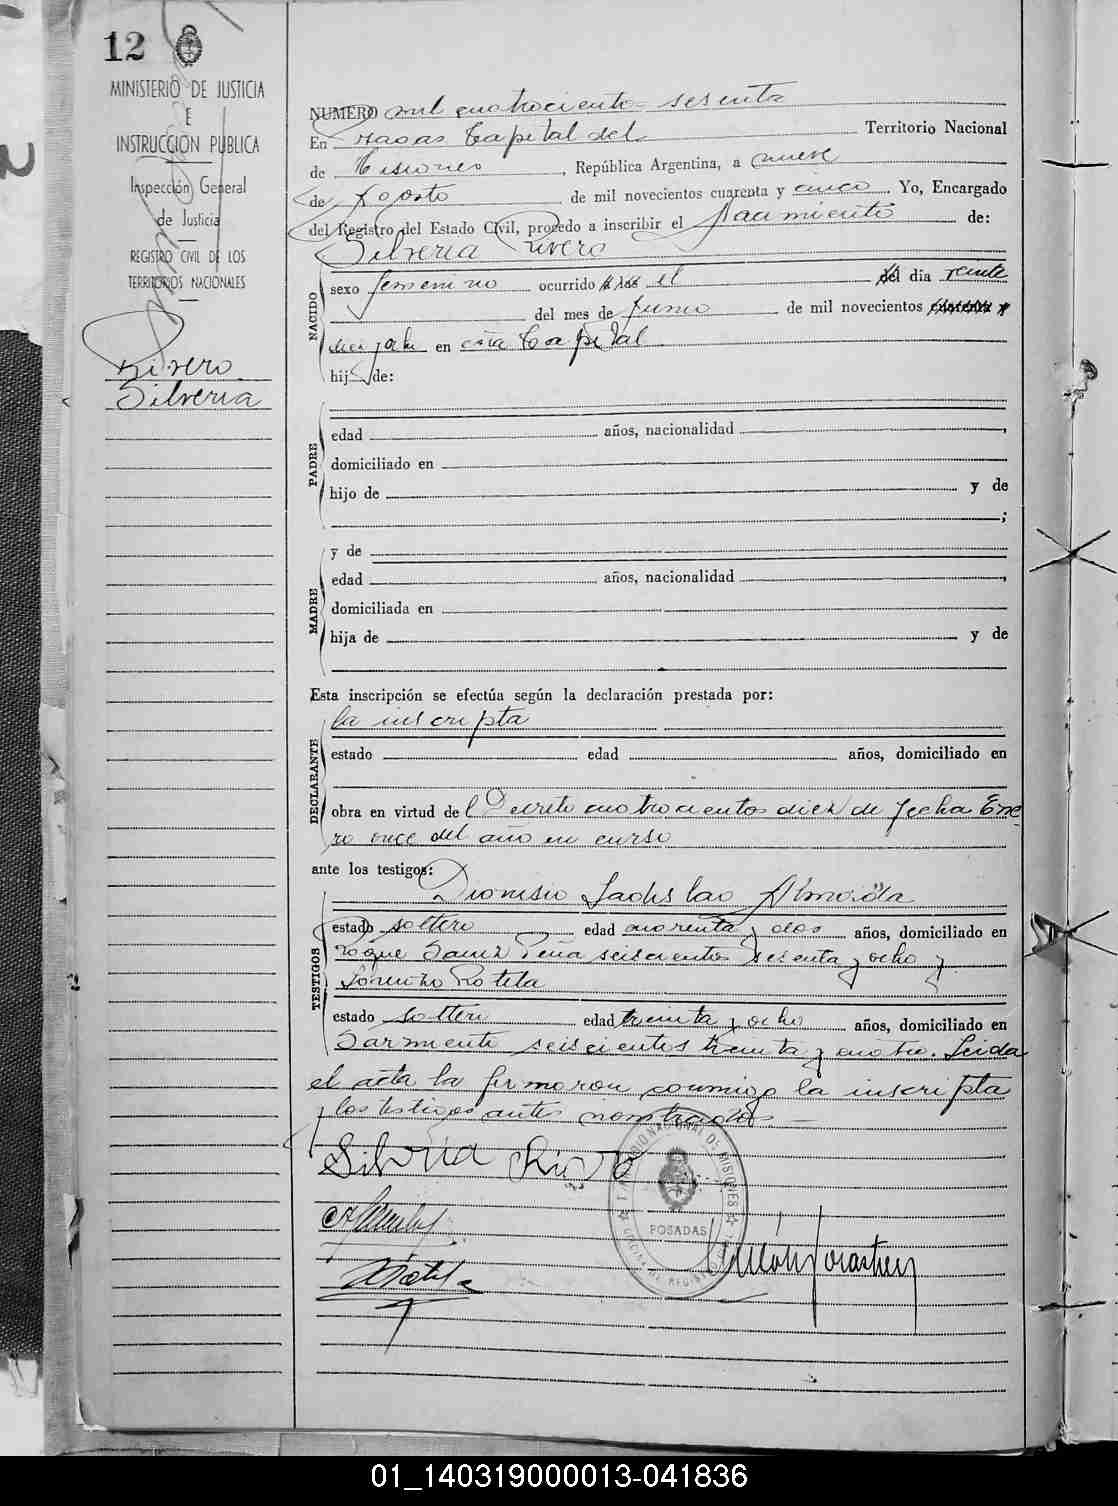 12
MINISTERIO DE JUSTICIA
E
INSTRUCCIÓN PÚBLICA
Inspección General
de Justicia
REGISTRO CIVIL DE LOS
TERRITORIOS NACIONALES
Rivero
Silveria
NUMERO mil cuatrocientos sesenta
En Posadas Capital del Territorio Nacional
de Misiones, República Argentina, a nueve
de Agosto de mil novecientos cuarenta y cinco. Yo, Encargado
del Registro del Estado Civil, procedo a inscribir el Nacimiento de:
Silveria Rivero
NACIDO
sexo femenino ocurrido el del día veinte
del mes de Junio de mil novecientos
en esta Capital
hij de:
PADRE
edad años, nacionalidad ,
domiciliado en
hijo de y de
;
y de
MADRE
edad años, nacionalidad ,
domiciliada en
hija de y de
Esta inscripción se efectúa según la declaración prestada por:
la inscripta
DECLARANTE
estado edad años, domiciliado en
obra en virtud del Decreto cuatrocientos diez de fecha Ene-
ro once del año en curso
ante los testigos:
Dionisio Ladislao Almeida
TESTIGOS
estado soltero edad cuarenta y dos años, domiciliado en
Roque Saenz Peña seiscientos sesenta y ocho y
Rotela
estado soltero edad treinta y ocho años, domiciliado en
Sarmiento seiscientos treinta y cuatro. Leida
el acta la firmaron conmigo la inscripta
y los testigos antes nombrados.—
Silveria Rivero
TERRITORIO NACIONAL DE MISIONES
POSADAS
01_140319000013-041836